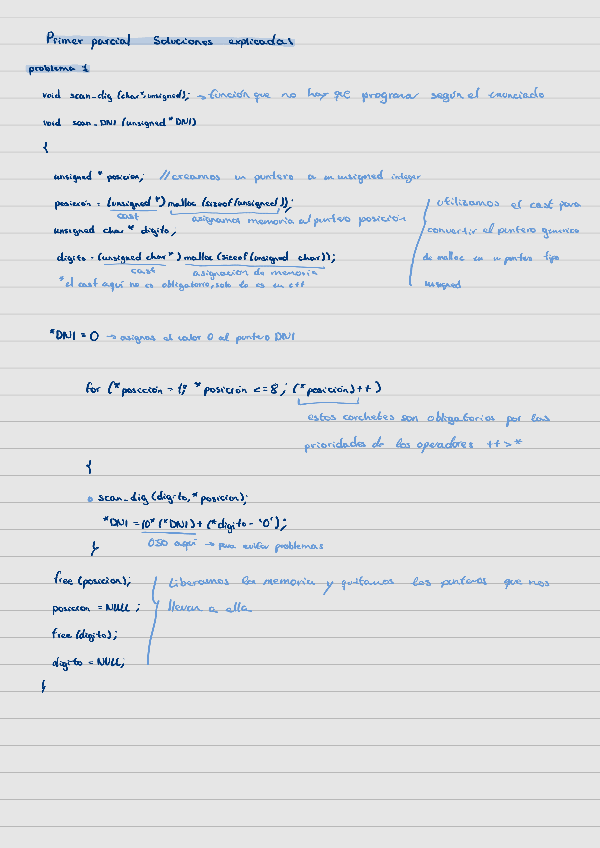 Primer parcial Soluciones explicadas
problema 1
void scan_dig (char*, unsigned); → función que no hay que programar según el enunciado
void scan_DNI (unsigned * DNI)
{
unsigned * posicion; // creamos un puntero a un unsigned integer
posicion = (unsigned *) malloc (sizeof (unsigned)); utilizamos el cast para
cast asignamos memoria al puntero posición
unsigned char * digito; convertir el puntero generico
digito = (unsigned char *) malloc (sizeof (unsigned char)); de malloc en un puntero tipo
cast asignación de memoria
*el cast aquí no es obligatorio, solo lo es en c++ unsigned
*DNI = 0 → asignas el valor 0 al puntero DNI
for (*posicion = 1; *posicion <= 8; (*posicion)++)
estos corchetes son obligatorios por las
prioridades de los operadores ++ > *
{
scan_dig (digito, *posicion);
*DNI = 10* (*DNI) + (*digito - '0');
OJO aquí → para evitar problemas
}
free (posicion); Liberamos la memoria y quitamos los punteros que nos
posicion = NULL; llevan a ella
free (digito);
digito = NULL;
}